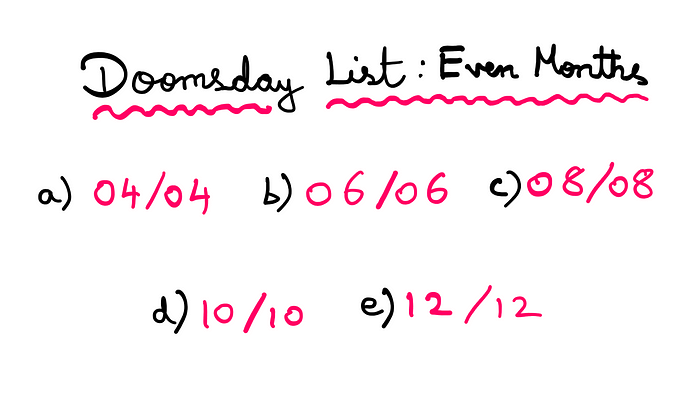 Doomsday List : Even Months
a) 04/04 b) 06/06 c) 08/08
d) 10/10 e) 12/12